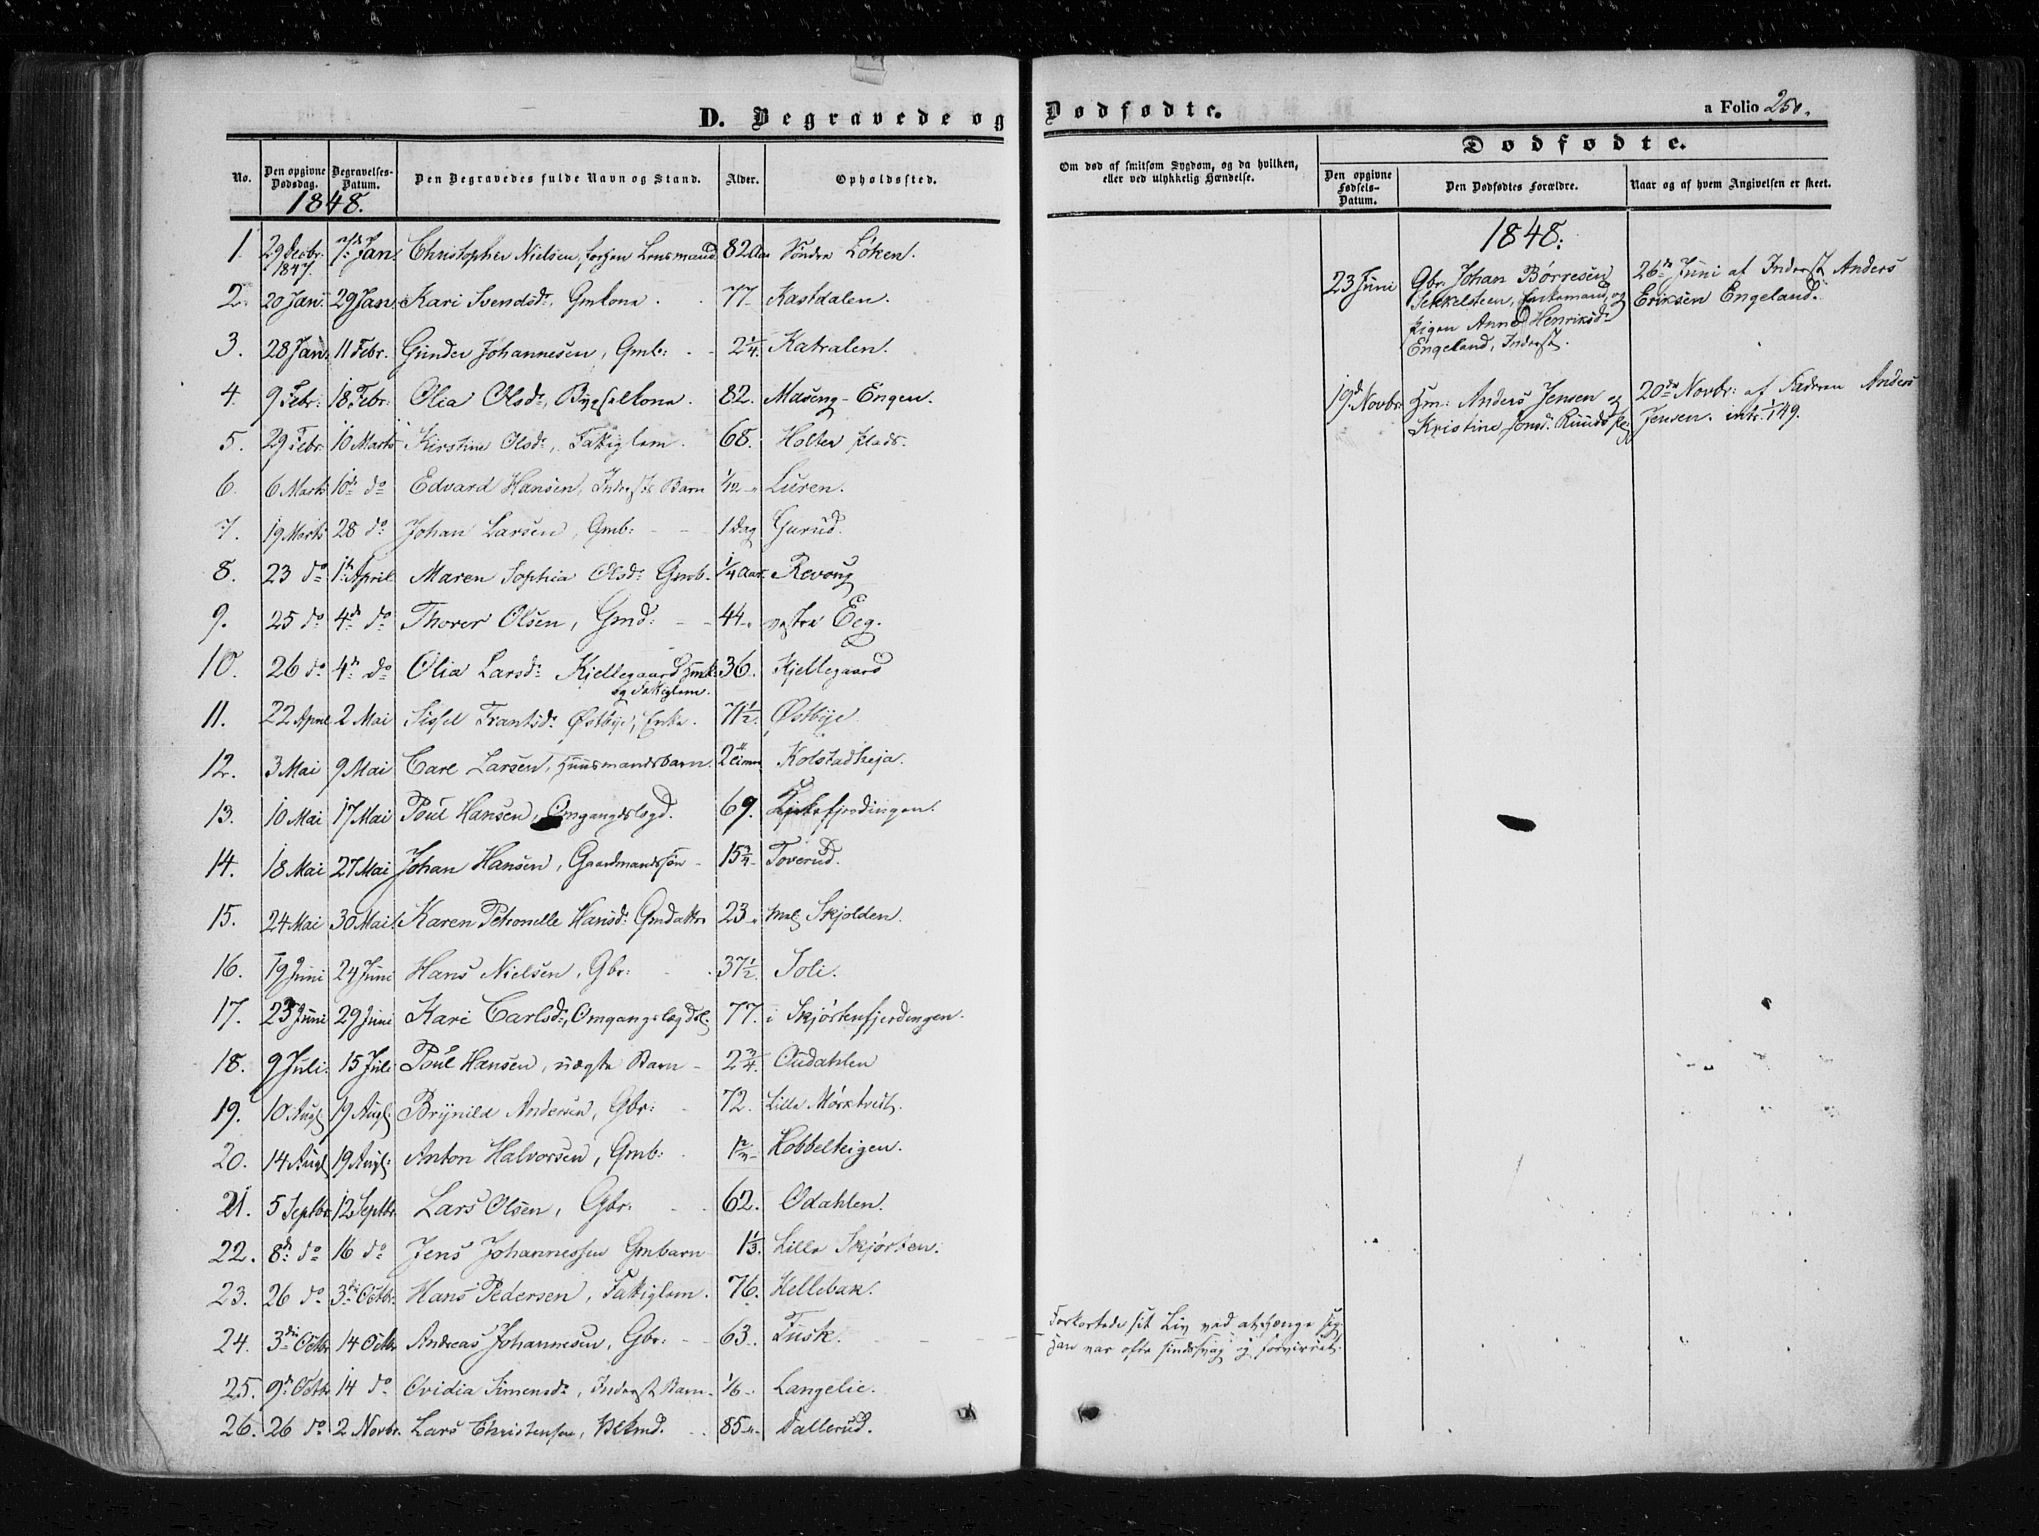 D. Begravede og Dødfødte.
a Folio 250.
No. Den opgivne Dødsdag. Begravelses-Datum. Den Begravedes fulde Navn og Stand. Alder. Opholdssted.
Om død af smitsom Sygdom, og da hvilken, eller ved ulykkelig Hændelse.
Dødfødte.
Den opgivne Fødsels-Datum. Den Dødfødtes Forældre. Naar og af hvem Angivelsen er skeet.
1848.
1. 29 Decbr. 1847. 7de Jan Christopher Nielsen, forhen Lensmand 82 Aar Søndre Løken.
2. 20 Jan: 29 Jan: Kari Svendsd:, Gmkona. 77 Kastdalen.
3. 28 Jan: 11 Febr. Gunder Johannesen, Gmb: 2 1/4. Katralen.
4. 9 Febr: 18 Febr: Olia Olsd:, Bygselkona. 82. Maseng-Engen.
5. 29 Febr. 10 Marts Kirstine Olsd:, Fattiglem. 68. Holter plads.
6. 6 Marts 10de do Edvard Hansen, Inderst: Barn 1/12 Luren.
7. 19 Marts 28 do Johan Larsen, Gmb: 1 Dag Gurud.
8. 23 do 1ste April Maren Sophia Olsd: Gmb. 1/4 Aar. Revoug
9. 25 do 4de do Thorer Olsen, Gmd: 44 vestre Eeg.
10. 26 do 4de do Olia Larsd: Kjellegaard Hmk: og Fattiglem. 36. Kjellegaard
11. 22 April 2 Mai Sissel Frantsd: Østbye, Enke. 71 1/2. Østbye.
12. 3 Mai 9 Mai Carl Larsen, Huusmandsbarn. 2 Kolstadheja.
13. 10 Mai 17 Mai Poul Hansen, Omgangslægd. 69. Kirkefjerdingen.
14. 18 Mai 27 Mai Johan Hansen, Gaardmandssøn 15 3/4. Toverud.
15. 24 Mai 30 Mai Karen Petronelle Hansd: Gmdatter 23 Skjolden.
16. 19 Juni 24 Juni Hans Nielsen, Gbr: 37 1/2. Soli.
17. 23 Juni 29 Juni Kari Carlsd:, Omgangslægdsl. 77. i Skjørtenfjerdingen.
18. 9 Juli: 15 Juli Poul Hansen, uægte Barn 2 3/4. Oudahlen
19. 10 Augs 19 Augs Brynild Andersen, Gbr: 72. Lille Mørktvedt.
20. 14 Augs 19 Augs: Anton Halvorsen, Gmb: Kobbelteigen.
21. 5 Septbr. 12 Septbr. Lars Olsen, Gbr: 62. Odahlen.
22. 8de do 16 do Jens Johannessen Gmbarn 1 1/3. Lille Skjørten.
23. 26 do 3die Octbr. Hans Pedersen, Fattiglem. 76. Hellebæk.
24. 3die Octbr 14 Octbr Andreas Johannesen, Gbr: 63. Fusk. Forkortede sit Liv ved at hænge sig.
Han var ofte sindssvag og forvirret.
25. 9de Octbr 14 do Ovidia Simensd:, Inderst Barn 1/6 Langelie.
26. 26 do 2 Novbr. Lars Christensen, 85 Dallerud.
1848:
23 Juni Gbr. Johan Børresen 26de Juni af Inderst Anders
Sekkelsteen, Enkemand, og Eriksen Engeland.
Pigen Anne Henriksd:
Engeland, Inderst.
19de Novbr. Hm: Anders Jensen og 20de Novbr: af Faderen Anders
Kristine Jonsd: Ruuds pl: Jensen. intr. 1/1 49.